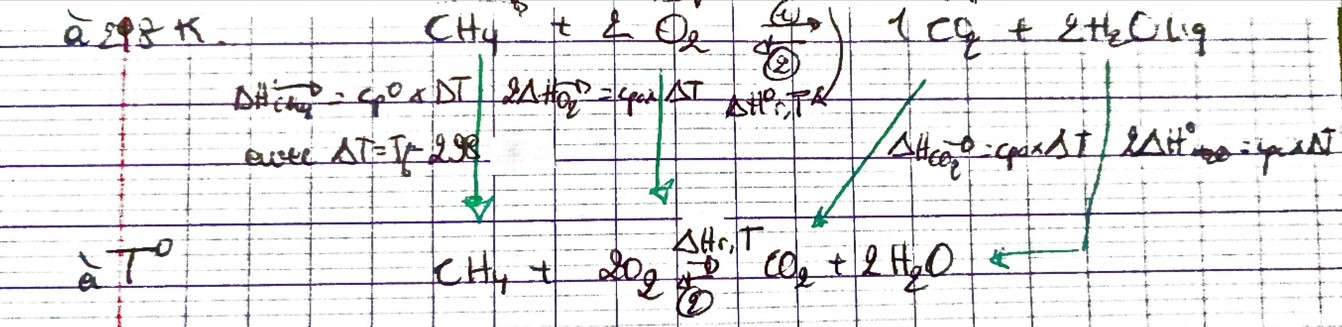 à 298 K. CH4 + 2 O2 ① ② 1 CO2 + 2H2O liq
ΔH CH4 = cp° x ΔT 2ΔH O2 = cp x ΔT ΔH°r,T
avec ΔT = Tf - 298 ΔH CO2 = cp x ΔT 2ΔH° = cp x ΔT
à T° CH4 + 2O2 ΔHr,T ② CO2 + 2 H2O